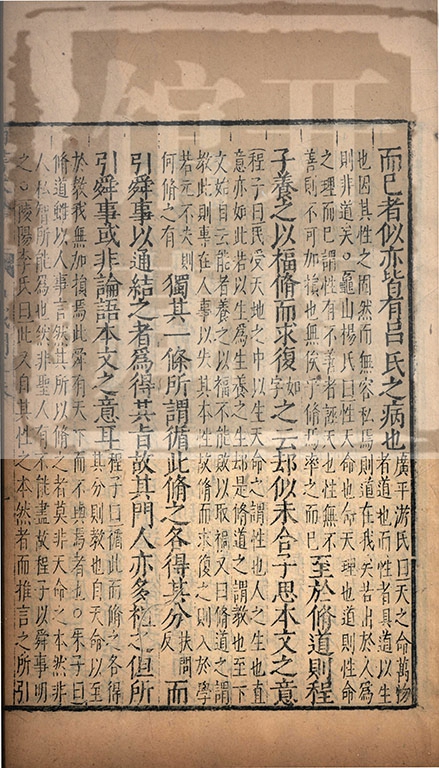 而已者似亦皆有呂氏之病也廣平游氏曰天之命萬物
者道也而性者具道以生
也因其性之固然而無容私焉則道在我矣若出於人為
則非道矣○龜山楊氏曰性天命也命天理也道則性命
之理而已謂性有不善者誣天也性無不
善則不可加損也無俟乎脩焉率之而已至於脩道則程
子養之以福脩而求復如字之云却似未合子思本文之意
程子曰民受天地之中以生天命之謂性也人之生也直
意亦如此若以生為生養之生却是脩道之謂教也至下
文始自云能者養之以福不能敗以取禍又曰脩道之謂
教此則專在人事以失其本性故脩而求復之則入於學
若元不失則
何脩之有獨其一條所謂循此脩之各得其分扶問反而
引舜事以通結之者為得其旨故其門人亦多祖之但所
引舜事或非論語本文之意耳程子曰循此而脩之各得
其分則教也自天命以至
於教我無加損焉此舜有天下而不與焉者也○朱子曰
脩道雖以人事言然其所以脩之者莫非天命之本然非
人私智所能為也然非聖人有不能盡故程子以舜事明
之○陵陽李氏曰此又自其性之本然者而推言之所引